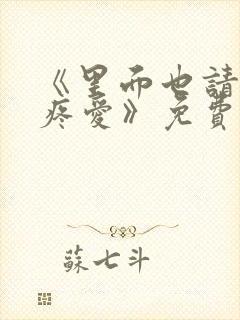 《里而也請
疼愛》免費
蘇七斗